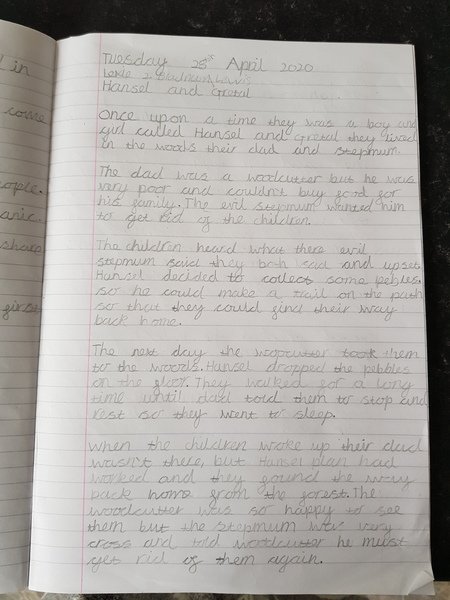 l in
come
ople.
anic.
sharp
Tuesday 28st April 2020
Hansel and Gretal
Once upon a time they was a boy and
girl called Hansel and Gretal they lived
in the woods their dad and stepmum.
The dad was a woodcutter but he was
very poor and couldn't buy food for
his family. The evil stepmum wanted him
to get rid of the children.
The children heard what there evil
stepmum said they both sad and upset.
Hansel decided to collect some pebles.
so he could make a trail on the path
so that they could find their way
back home.
The next day the woodcutter took them
to the woods. Hansel dropped the pebbles
on the floor. They walked for a long
time until dad told them to stop and
rest so they went to sleep.
When the children woke up their dad
wasn't there, but Hansel plan had
worked and they found the way
back home from the forest. The
woodcutter was so happy to see
them but the stepmum was very
cross and told woodcutter he must
get rid of them again.